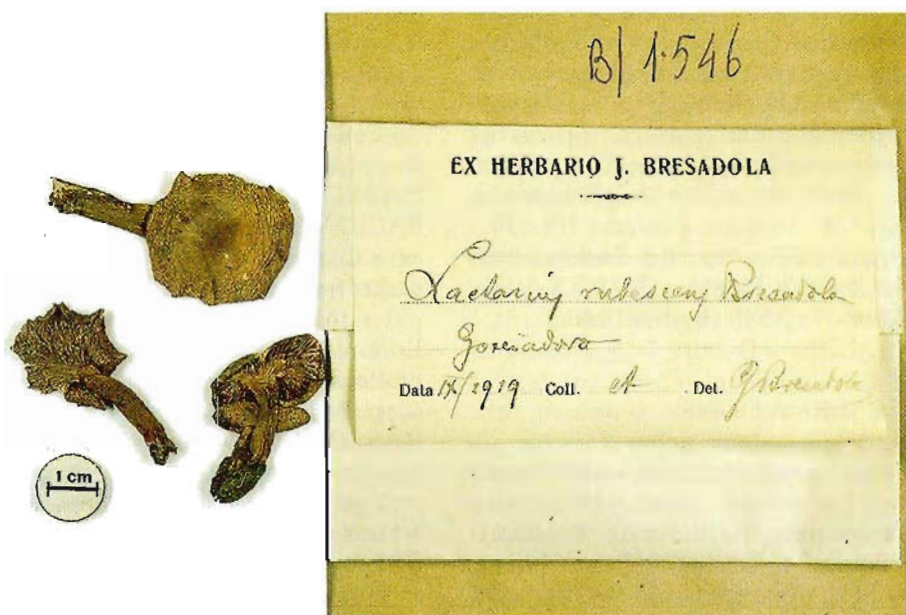 B/ 1546
EX HERBARIO J. BRESADOLA
Lactarius rubescens Bresadola
Data IX/1919 Coll. et Det. G Bresadola
1 cm